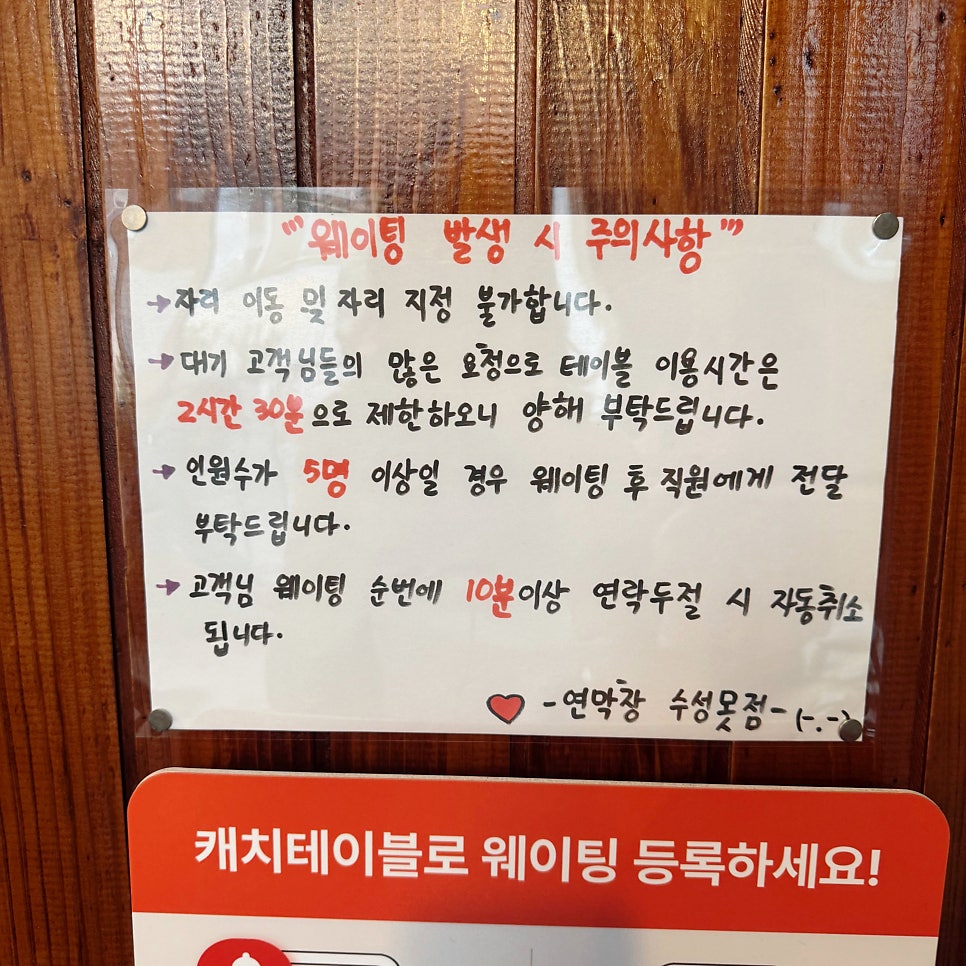 "'웨이팅 발생 시 주의사항'"
→자리 이동 및 자리 지정 불가합니다.
→대기 고객님들의 많은 요청으로 테이블 이용시간은
2시간 30분으로 제한하오니 양해 부탁드립니다.
→인원수가 5명 이상일 경우 웨이팅 후 직원에게 전달
부탁드립니다.
→고객님 웨이팅 순번에 10분이상 연락두절 시 자동취소
됩니다.
♥ -연막창 수성못점- (-.-)
캐치테이블로 웨이팅 등록하세요!